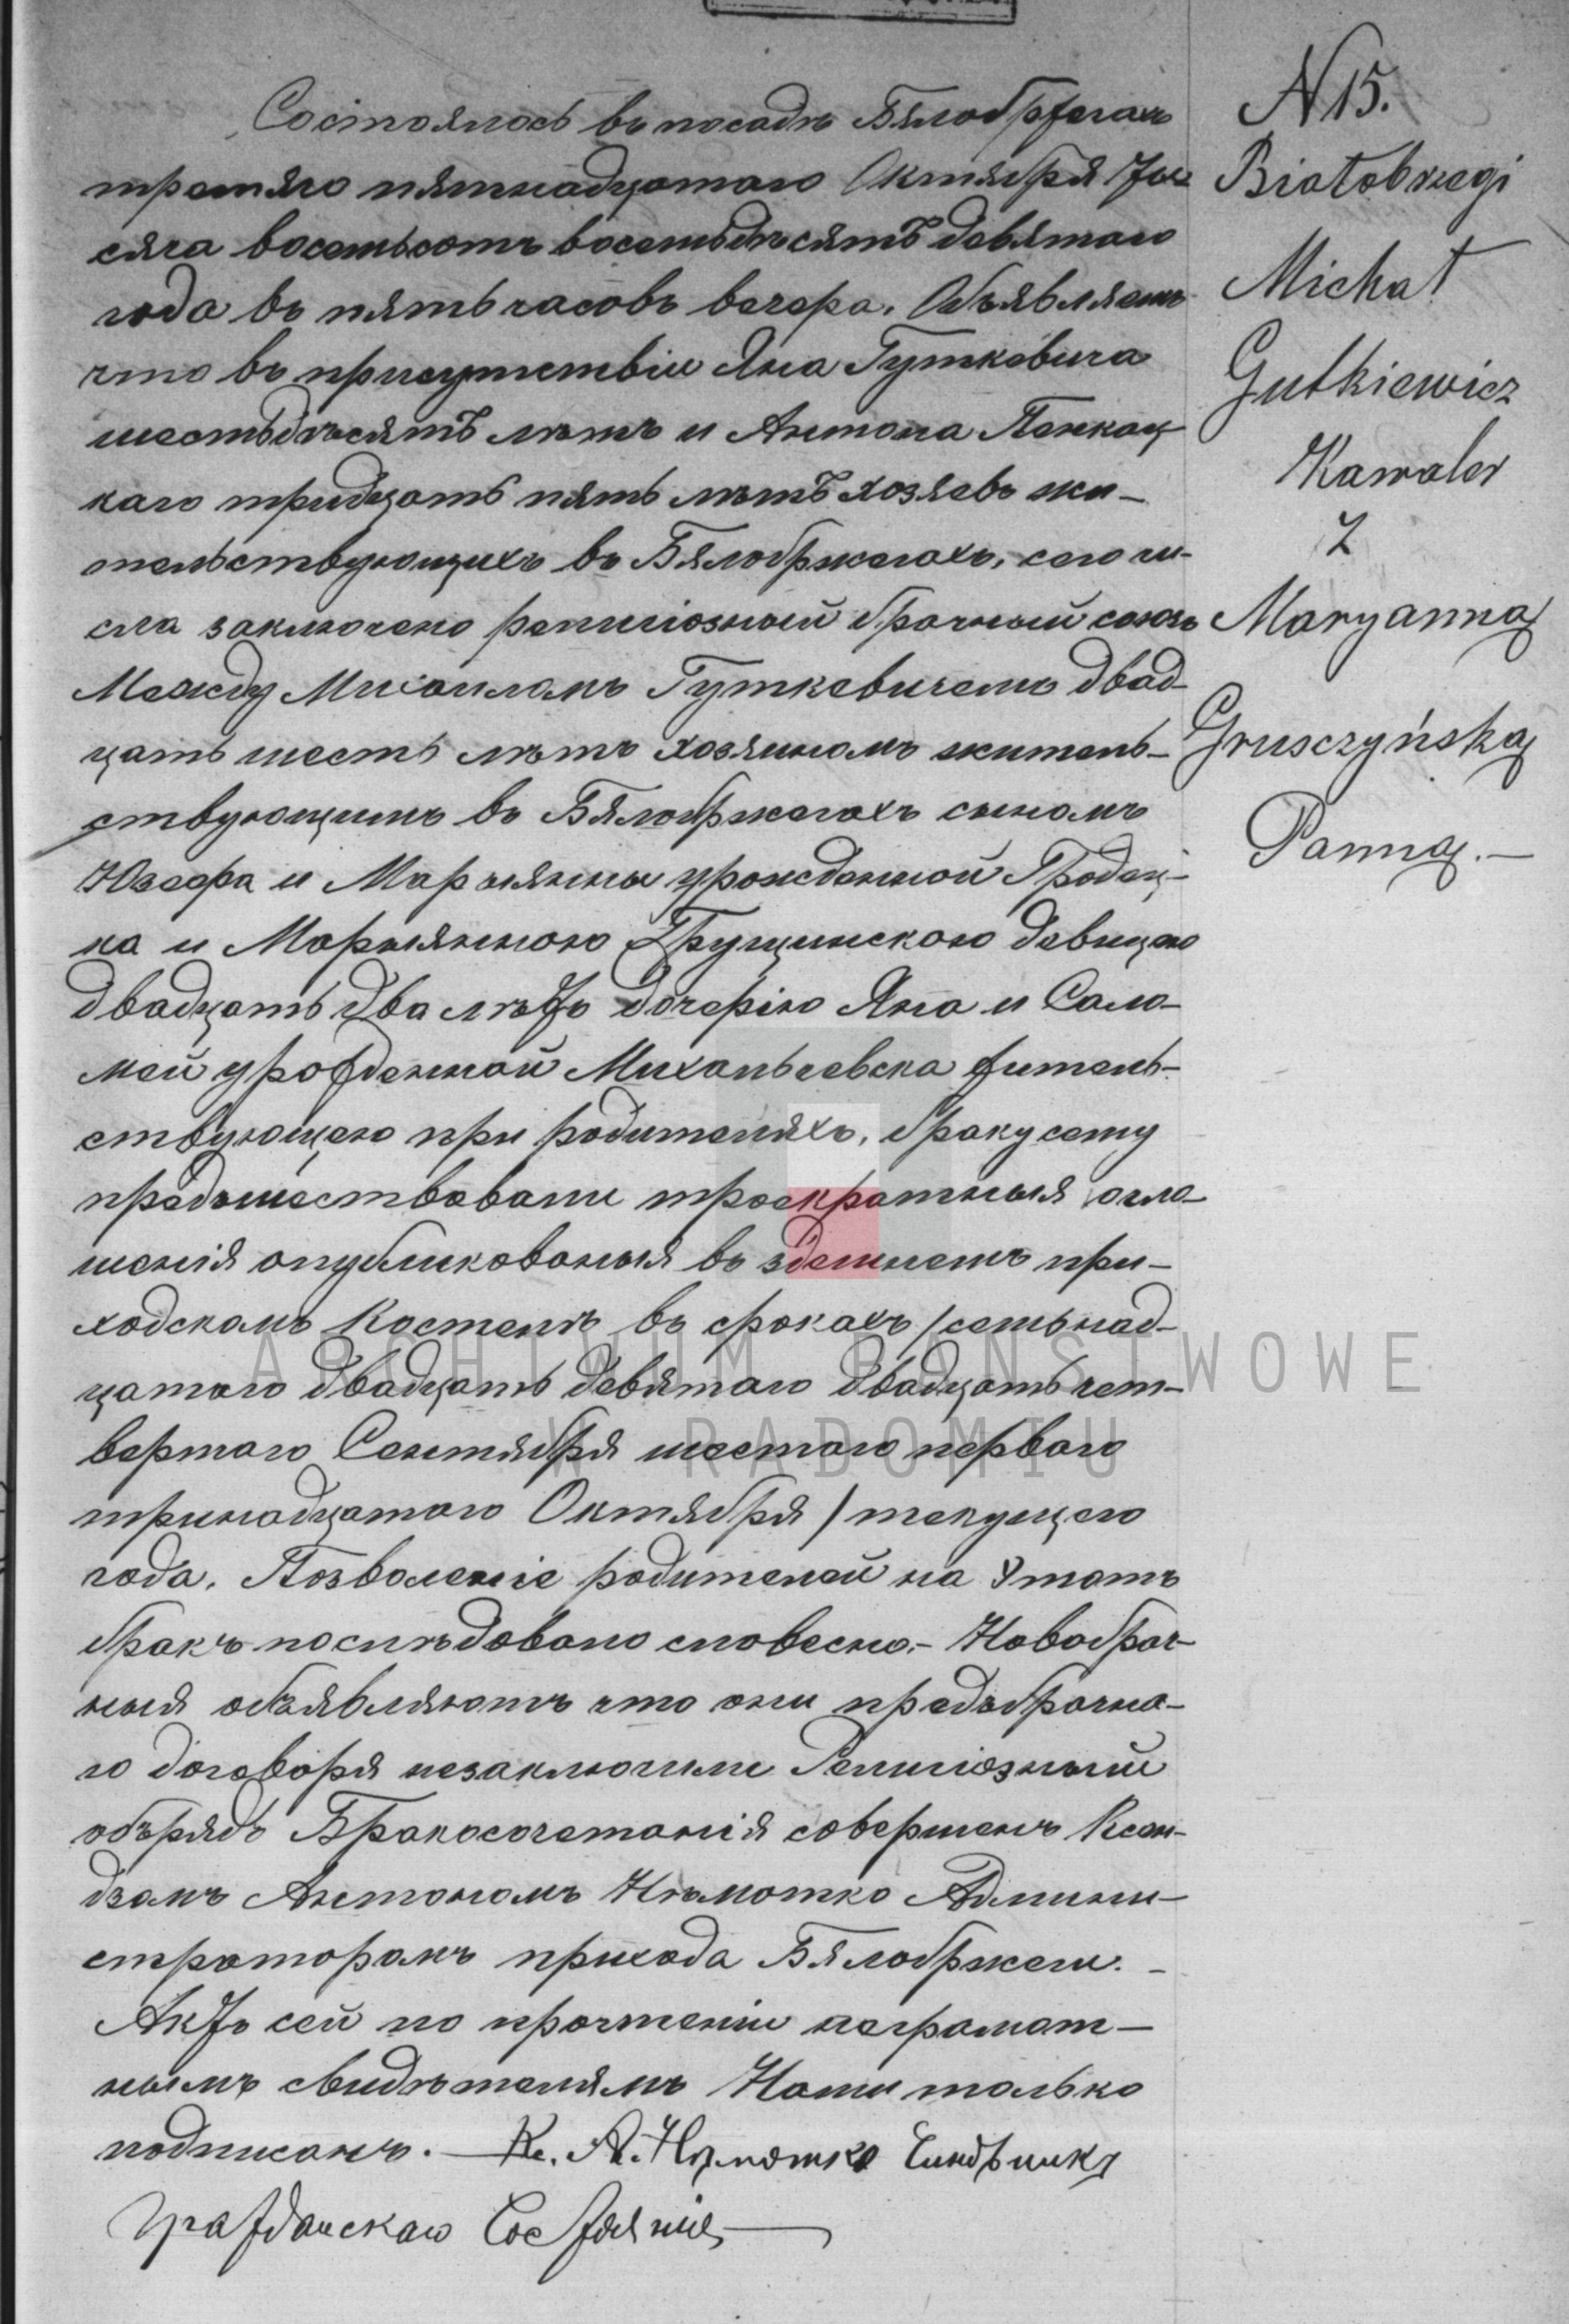 Состоялось въ посадѣ Бялобржегахъ
третяго пятнадцатаго Октября Ты
сяча восемьсотъ восемьдѣсятъ девятаго
года въ пять часовъ вечера. Объявляемъ
что въ присутствіи Яна Гуткевича
шестьдѣсятъ лѣтъ и Антона Пенкац
каго тридцать пять лѣтъ хозяевъ жи-
тельствующихъ въ Бялобржегахъ, сего чи-
сла заключено религіозный брачный союзъ
Между Михаиломъ Гуткевичемъ двад-
цать шесть лѣтъ хозяиномъ житель-
ствующимъ въ Бялобржегахъ сыномъ
Юзефа и Марыянны урожденной Гродец-
ка и Марыянною Грущинскою девицею
двадцать два лѣтъ дочерію Яна и Сало-
меи урожденной Михальчевска житель-
ствующею при родителяхъ, браку сему
предшествовали троекратныя огла-
шенія опубликованыя въ здешнемъ при-
ходскомъ Костелѣ въ срокахъ /семьнад-
цатаго двадцать девятаго двадцать чет-
вертаго Сентября шестаго перваго
тринадцатаго Октября / текущего
года. Позволеніе родителей на этотъ
бракъ послѣдовало словесно.- Новобрач-
ныя объявляютъ что они предъбрачна-
го договоря незаключили Религіозный
обърядъ Бракосочетанія совершенъ Ксен-
дзомъ Антономъ Нѣмотко Админи-
страторомъ прихода Бялобржеги. -
Актъ сей по прочтеніи неграмот-
нымъ свидѣтелямъ Нами только
подписанъ. — Кс. А. Нѣмотко
Гражданскаго Состоянія
N 15.
Białobrzegi
Michał
Gutkiewicz
Kawaler
z
Maryanną
Grusczyńską
Panną.—
ARCHIWUM PAŃSTWOWE
W RADOMIU